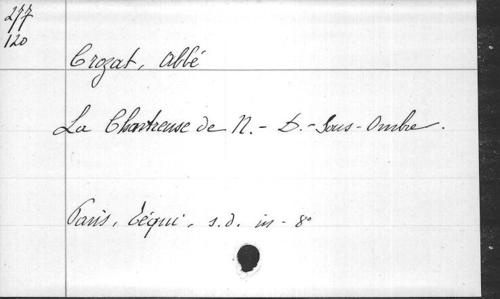 277
120
Crozat, Abbé
La Chartreuse de N.-D.-Sous-Ombre.
Paris, Téqui, s.d. in-8°